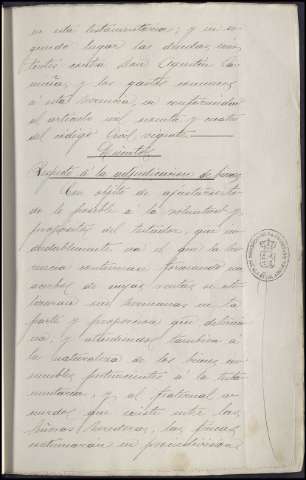 en esta testamentaria; y en se-
gundo lugar las deudas con-
tra don Agustin
y los gastos comunes
á esta herencia, en conformidad
al artículo mil sesenta y cuatro
del código Civil vigente.
Respecto á la adjudicación de bienes
Con objeto de ajustarse
de lo posible á la voluntad y
propósitos del testador, que in-
dudablemente era el que la he-
rencia continuara formando un
acerbo de cuyas rentas se uti-
lizaran sus hermanas en la
parte y proporción que determi-
na, y atendiendo tambien á
la naturaleza de los bienes in-
muebles pertenecientes á la testa-
mentaria, y, al fraternal a-
cuerdo que existe entre las
herederas, las fincas
continuarán en proindivision